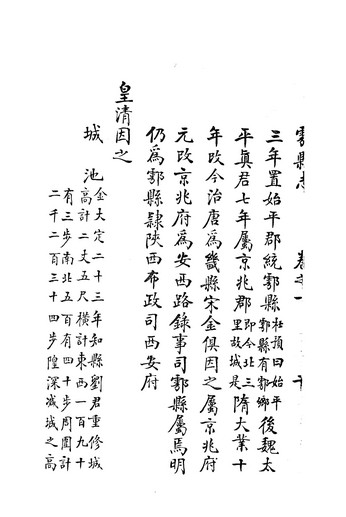 鄠縣志 卷之一
三年置始平郡統鄠縣杜預曰始平鄠縣有鄠鄉後魏太
平真君七年屬京兆郡即今北三里故城是隋大業十
年改今治唐為畿縣宋金俱因之屬京兆府
元改京兆府為安西路錄事司鄠縣屬焉明
仍為鄠縣隸陝西布政司西安府
皇清因之
城 池金大定二十三年知縣劉君重修城
高計二丈五尺橫計東西一百九十
有三步南北五百有四十步周圍計
二千二百三十四步隍深減城之高